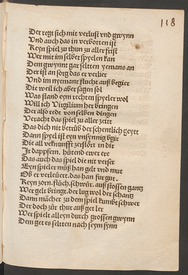 118
Der regt sich mit verlust und gwynn
Und auch das in verborten ist
Keyn spiel zu thun zu aller frist
Wer mit im selber spyelen kan
Dem gwynnt gar selten yemans an
Der ist an sorg das er verlier
Und im yemant fluche auß begier
Die weil ich aber sagen sol
Was stand eym rechten spyeler wol
Will ich Virgilium her bringen
Der also redt von selben dingen
Veracht das spiel zu aller zitt
Das dich nit betrüb der schentlich gytt
Dann spyel ist eyn unsynnig bgir
Die all vernunfft zerstört in dir
Ir dappfern, hütend ewer ere
Das auch das spiel die nit versere
Eyn spyeler muß han gelt und mut
Ob er verlürt, das han für gut
Keyn zorn, flüch, schwür, auß stossen gantz
Wer gelt bringt, der lug wol der schantz
Dann mancher zu dem spiel kumbt schwer
Der doch zur thür auß get ler
Wer spielt alleyn durch grossen gwynn
Dem get es selten nach seym synn